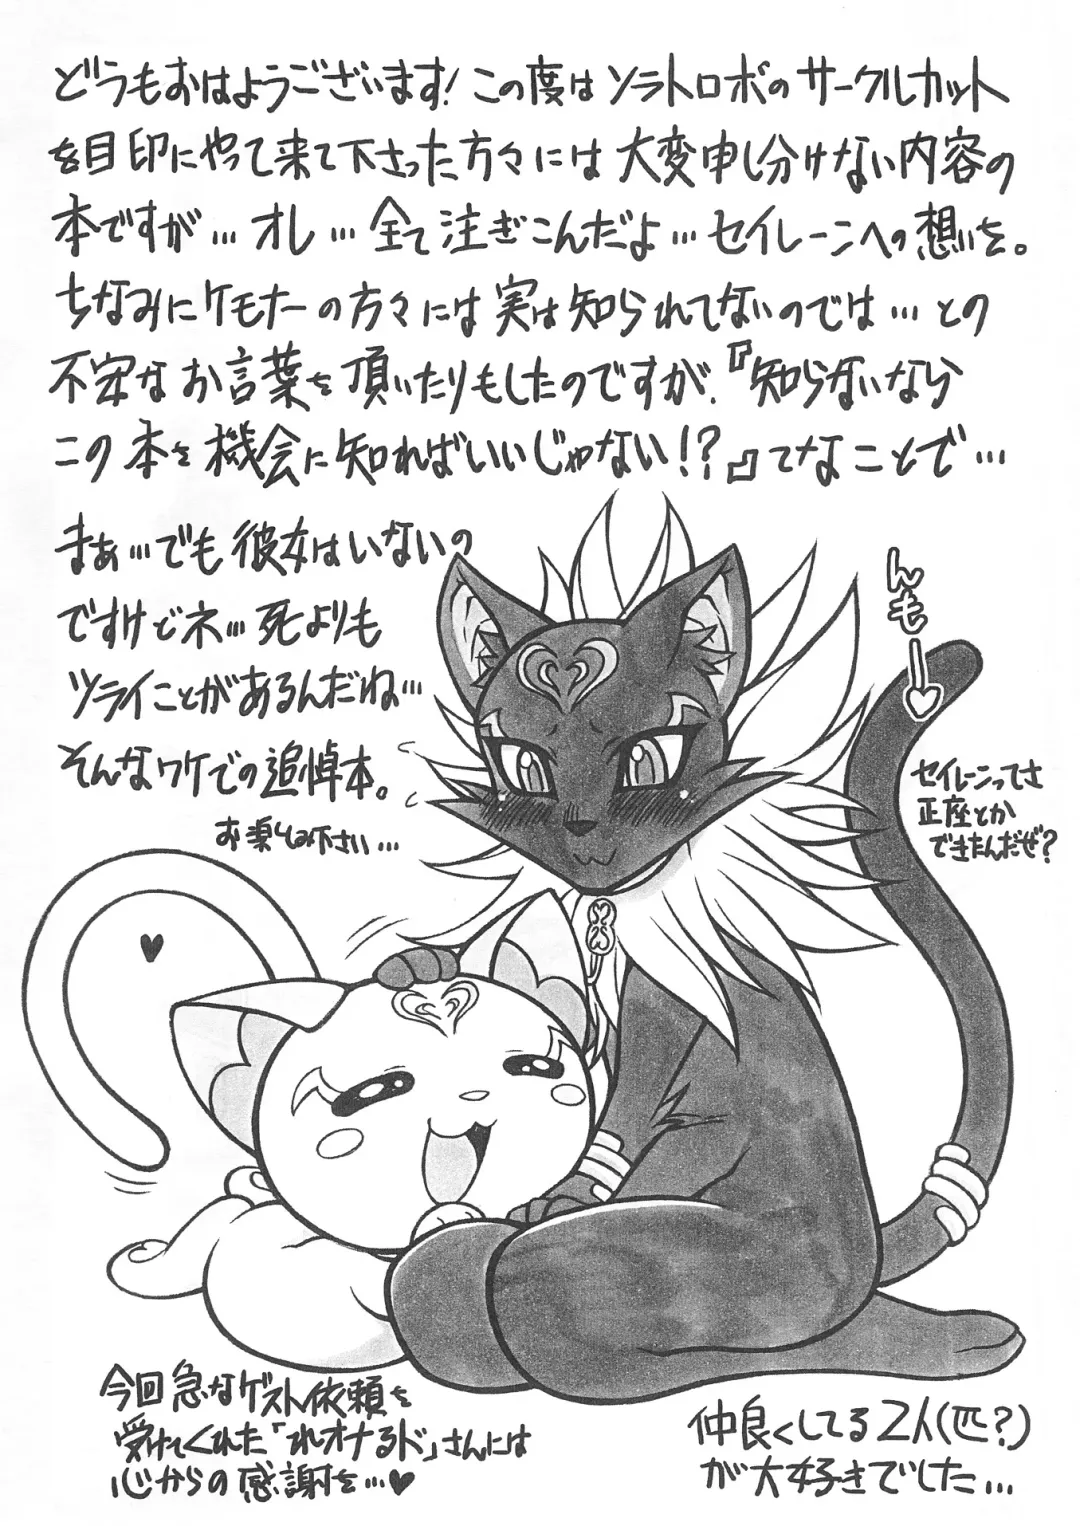 どうもおはようございます!この度はソラトロボのサークルカット
を目印にやって来て下さった方々には大変申し分けない内容の
本ですが…オレ…全て注ぎこんだよ…セイレーンへの想いを。
ちなみにケモナーの方々には実は知られてないのでは…との
不安なお言葉を頂いたりもしたのですが、『知らないなら
この本を機会に知ればいいじゃない!?』てなことで…
まぁ…でも彼女はいないの
ですけどネ…死よりも
ツライことがあるんだね…
そんなワケでの追悼本。
お楽しみ下さい…
んもー♡
セイレーンってさ
正座とか
できたんだぜ?
今回急なゲスト依頼を
受けてくれた「れオナるド」さんには
心からの感謝を…♥
仲良くしてる2人(匹?)
が大好きでした…